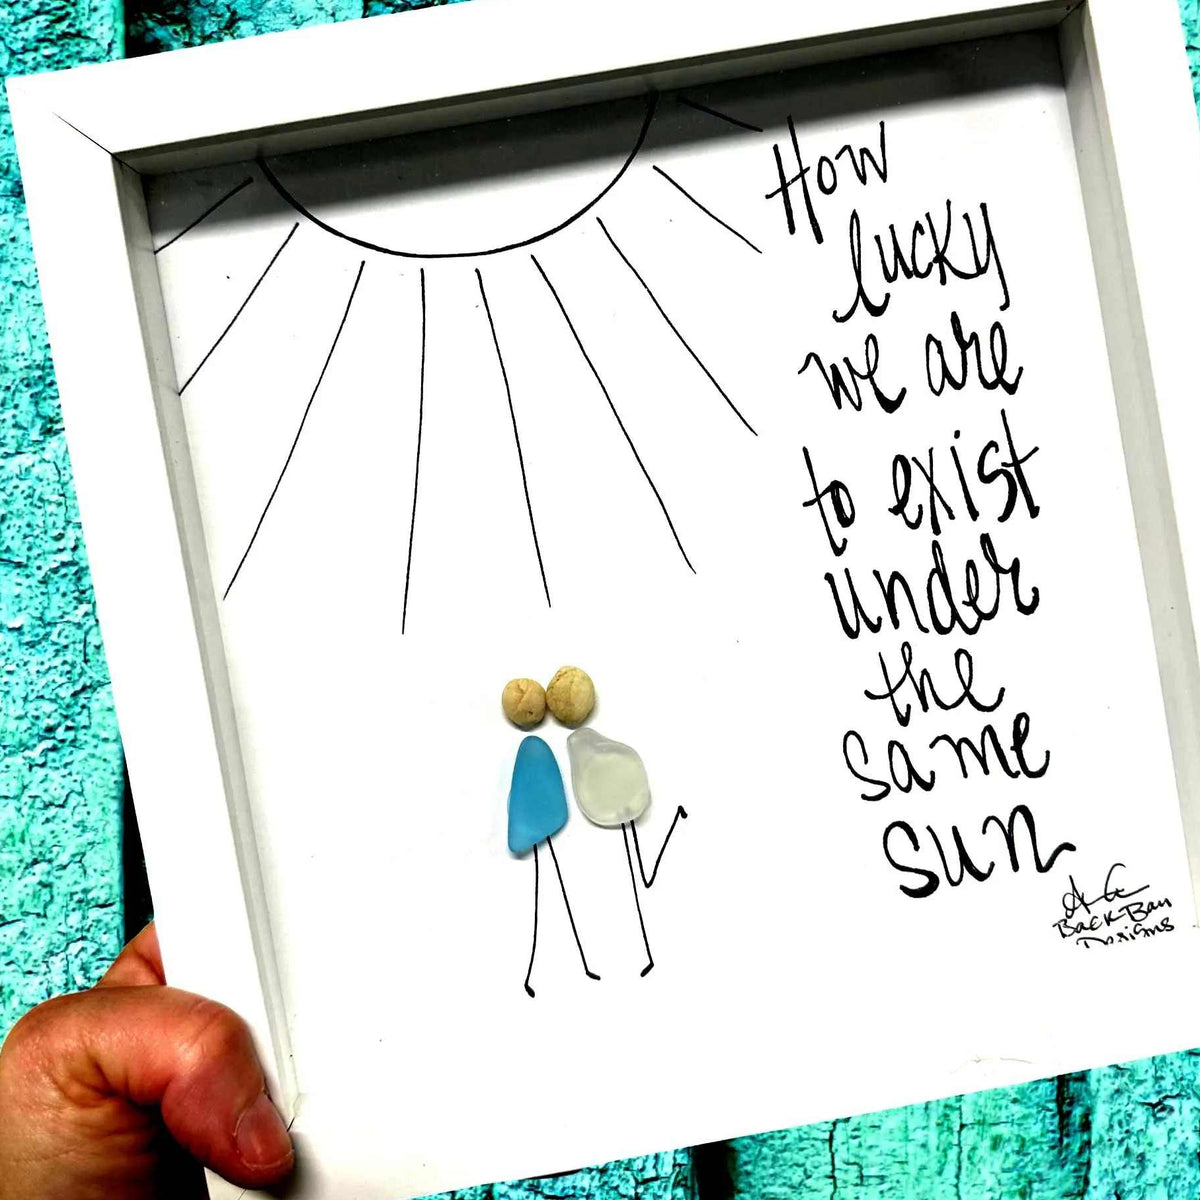 How
lucky
we are
to exist
under
the
same
sun
Back Bay
Designs